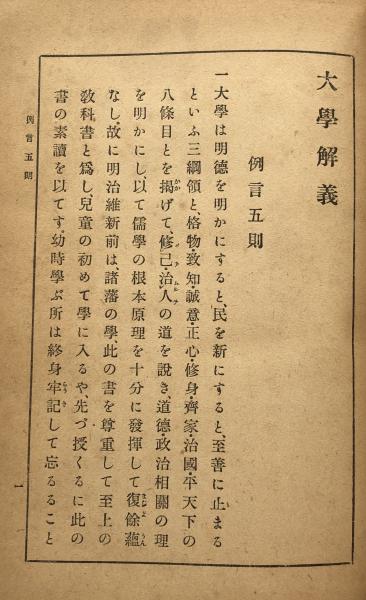 大學解義
例言五則
一大學は明德を明かにすると、民を新にすると、至善に止まる
といふ三綱領と、格物・致知・誠意・正心・修身・齊家・治國・平天下の
八條目とを揭げて、修己・治人の道を說き、道德・政治相關の理
を明かにし、以て儒學の根本原理を十分に發揮して復餘蘊
なし。故に明治維新前は、諸藩の學、此の書を尊重して至上の
敎科書と爲し、兒童の初めて學に入るや、先づ授くるに此の
書の素讀を以てす。幼時學ぶ所は終身牢記して忘るること
例言五則
一